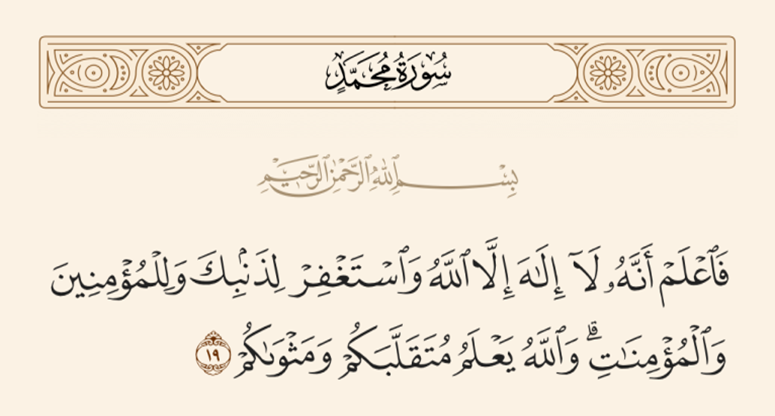 سُورَةُ مُحَمَّدٍ
بِسْمِ ٱللَّهِ ٱلرَّحْمَٰنِ ٱلرَّحِيمِ
فَٱعْلَمْ أَنَّهُۥ لَآ إِلَٰهَ إِلَّا ٱللَّهُ وَٱسْتَغْفِرْ لِذَنۢبِكَ وَلِلْمُؤْمِنِينَ
وَٱلْمُؤْمِنَٰتِ ۗ وَٱللَّهُ يَعْلَمُ مُتَقَلَّبَكُمْ وَمَثْوَىٰكُمْ ١٩